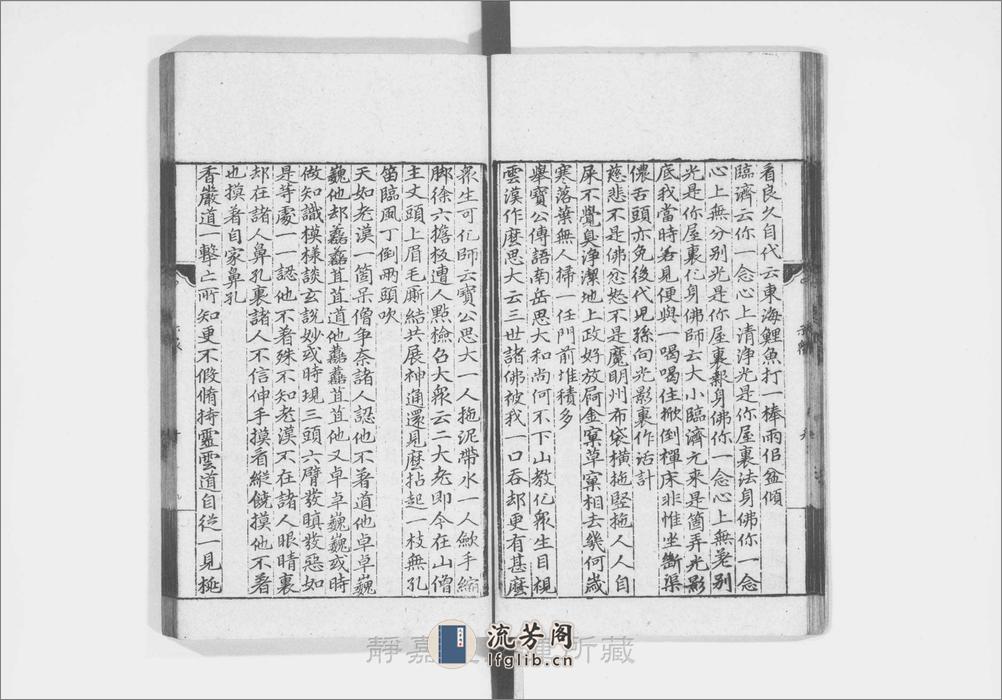 看良久自代云東海鯉魚打一棒雨似盆傾
臨濟云你一念心上清淨光是你屋裏法身佛你一念
心上無分別光是你屋裏報身佛你一念心上無差別
光是你屋裏化身佛師云大小臨濟元來是箇弄光影
底我當時若見便與一喝喝住掀倒禪床非惟坐斷渠
儂舌頭亦免後代兒孫向光影裏作活計
慈悲不是佛忿怒不是魔明州布袋橫拖竪拖人人自
屎不覺臭淨潔地上政好放屙金窠草窠相去幾何歲
寒落葉無人掃一任門前堆積多
舉寶公傳語南岳思大和尚何不下山教化衆生目視
雲漢作麼思大云三世諸佛被我一口吞却更有甚麼
衆生可化師云寶公思大一人拖泥帶水一人歛手縮
脚徐六擔板遭人點檢召大衆云二大老即今在山僧
主丈頭上眉毛厮結共展神通還見麼拈起一枝無孔
笛臨風丁倒兩頭吹
天如老漢一箇呆僧爭奈諸人認他不着道他卓卓巍
巍他却磊磊苴苴道他磊磊苴苴他又卓卓巍巍或時
做知識模樣談玄說妙或時現三頭六臂發瞋發惡如
是等處一一認他不着殊不知老漢不在諸人眼睛裏
却在諸人鼻孔裏諸人不信伸手摸看縱饒摸他不着
也摸着自家鼻孔
香嚴道一擊亡所知更不假脩持靈雲道自從一見桃
流芳阁
lfglib.cn
靜嘉
所藏